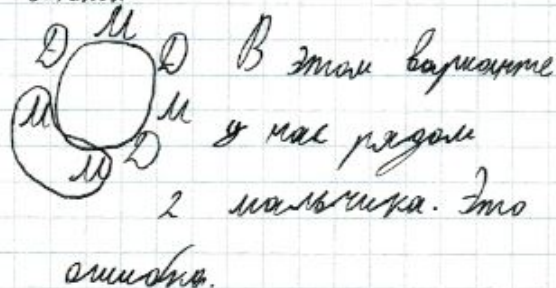 М
Д Д В этом варианте
М М у нас рядом
М Д
2 мальчика. Это
ошибка.